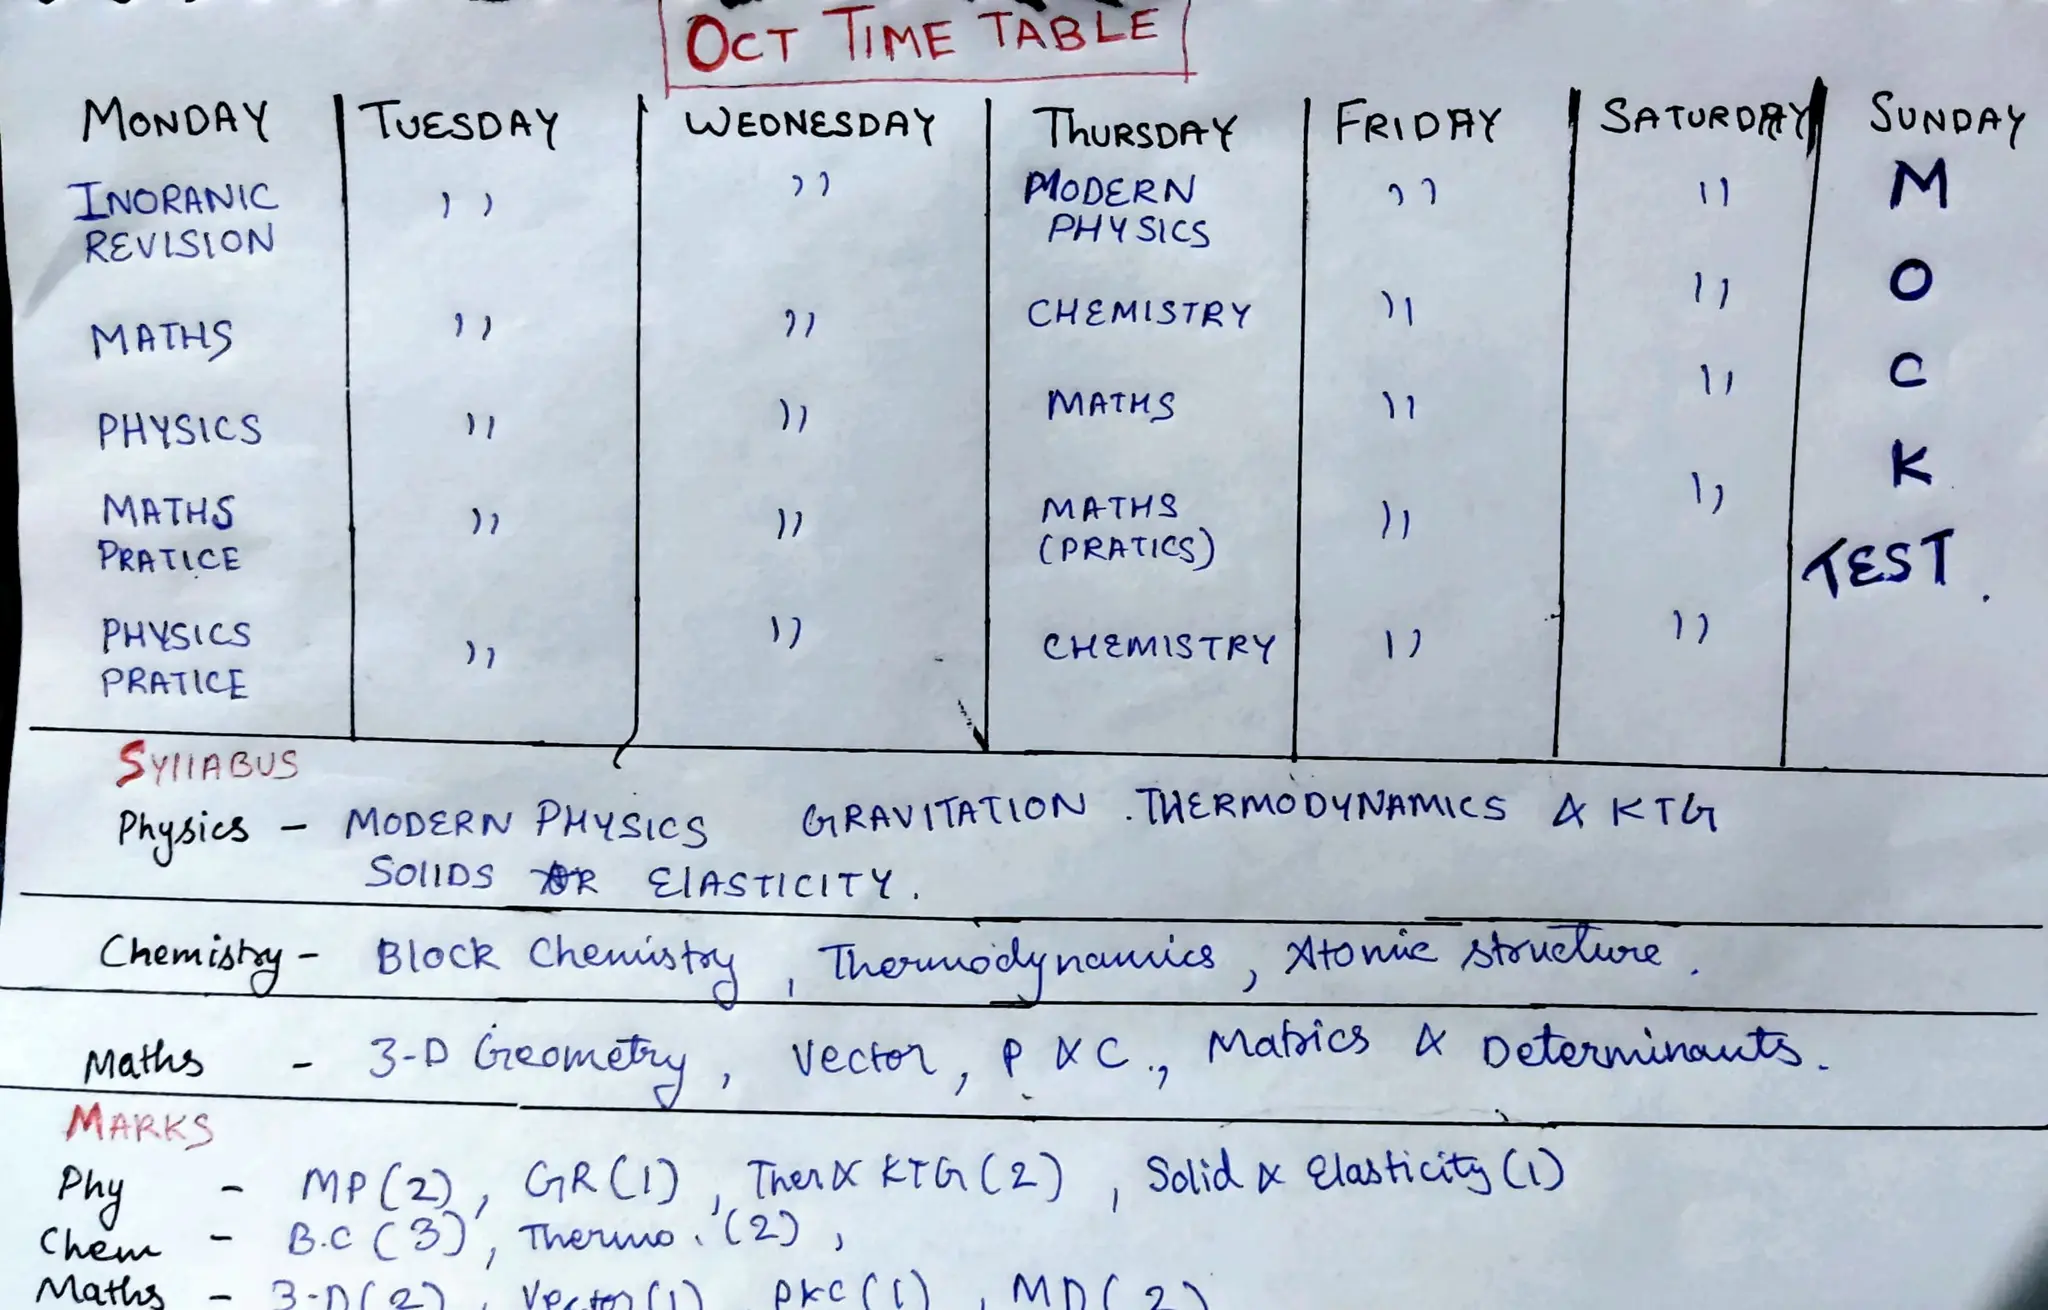 OCT TIME TABLE
MONDAY TUESDAY WEDNESDAY THURSDAY FRIDAY SATURDAY SUNDAY
INORANIC REVISION ,, ,, MODERN PHYSICS ,, ,, M
MATHS ,, ,, CHEMISTRY ,, ,, O
PHYSICS ,, ,, MATHS ,, ,, C
MATHS PRATICE ,, ,, MATHS (PRATICS) ,, ,, K
TEST.
PHYSICS PRATICE ,, ,, CHEMISTRY ,, ,,
SYllABUS
Physics - MODERN PHYSICS GRAVITATION . THERMODYNAMICS & KTG
SOlIDS OR ElASTICITY.
Chemistry - Block Chemistry, Thermodynamics, Atomic structure.
Maths - 3-D Geometry, Vector, P & C., Matrics & Determinants.
MARKS
Phy - MP(2), GR(1), Ther & KTG(2), Solid & Elasticity(1)
Chem - B.C(3), Thermo.(2),
Maths - 3-D(2), Vector(1), P&C(1), MD(2)